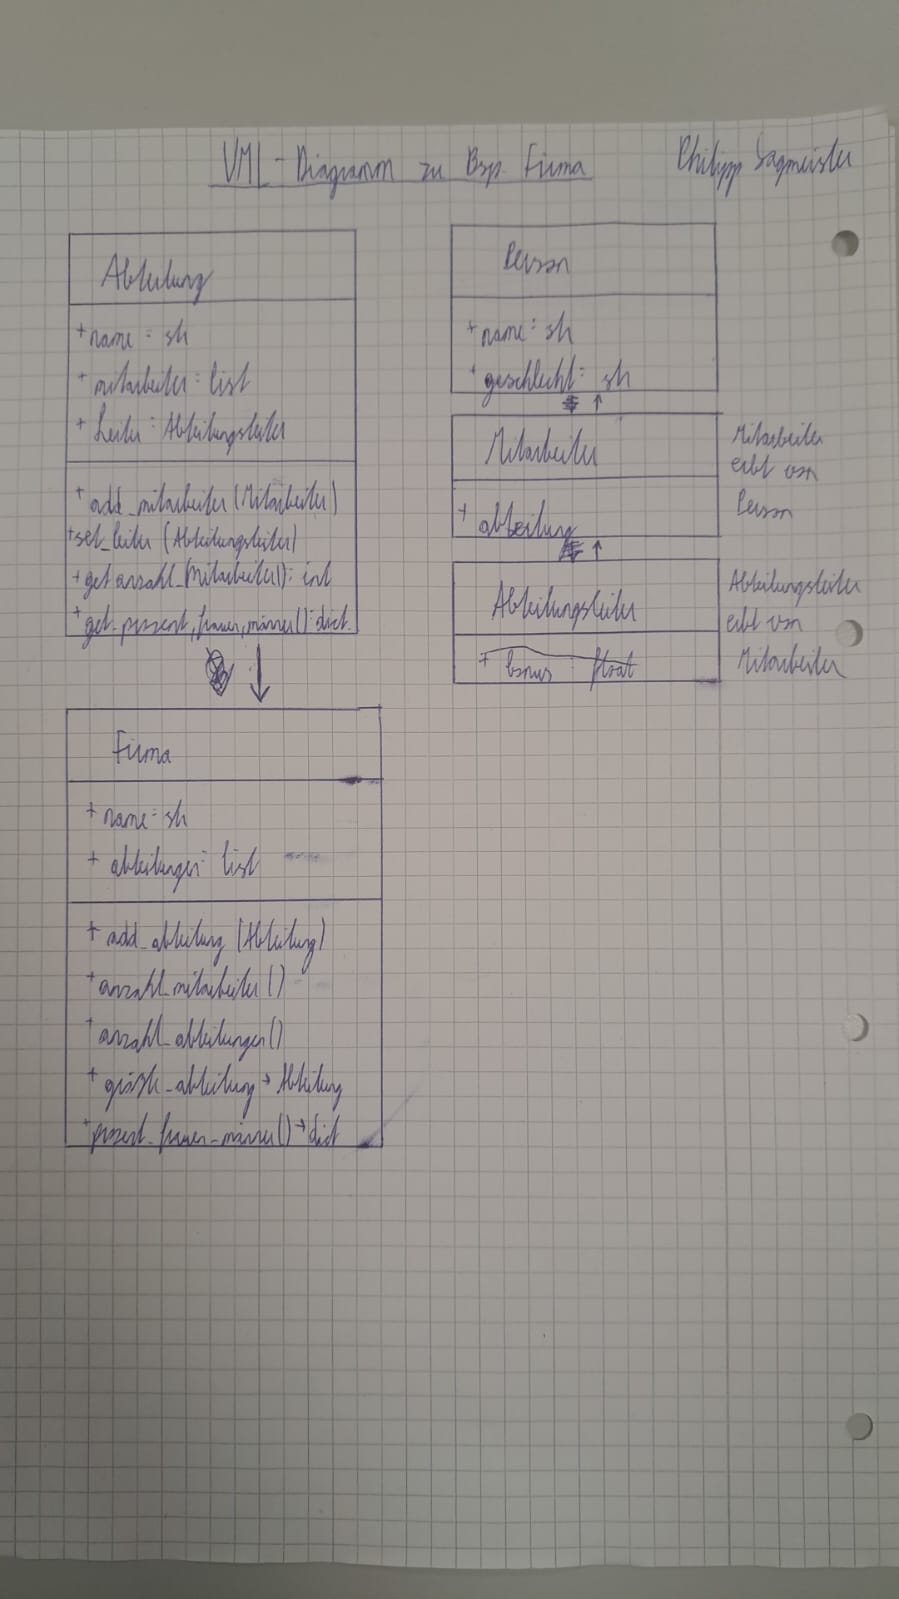 UML-Diagramm zu Bsp. Firma
Philipp Sagmeister
Abteilung
+ name: str
+ mitarbeiter: list
+ Leiter: Abteilungsleiter
+ add_mitarbeiter (Mitarbeiter)
+ set_leiter (Abteilungsleiter)
+ get anzahl_Mitarbeiter(): int
+ get_prozent, frauen, männer(): dict
Firma
+ name: str
+ abteilungen: list
+ add_abteilung (Abteilung)
+ anzahl_mitarbeiter()
+ anzahl_abteilungen()
+ größte_abteilung → Abteilung
+ prozent_frauen_männer() → dict
Person
+ name: str
+ geschlecht: str
Mitarbeiter
+ abteilung
Mitarbeiter
erbt von
Person
Abteilungsleiter
+ bonus : float
Abteilungsleiter
erbt von
Mitarbeiter